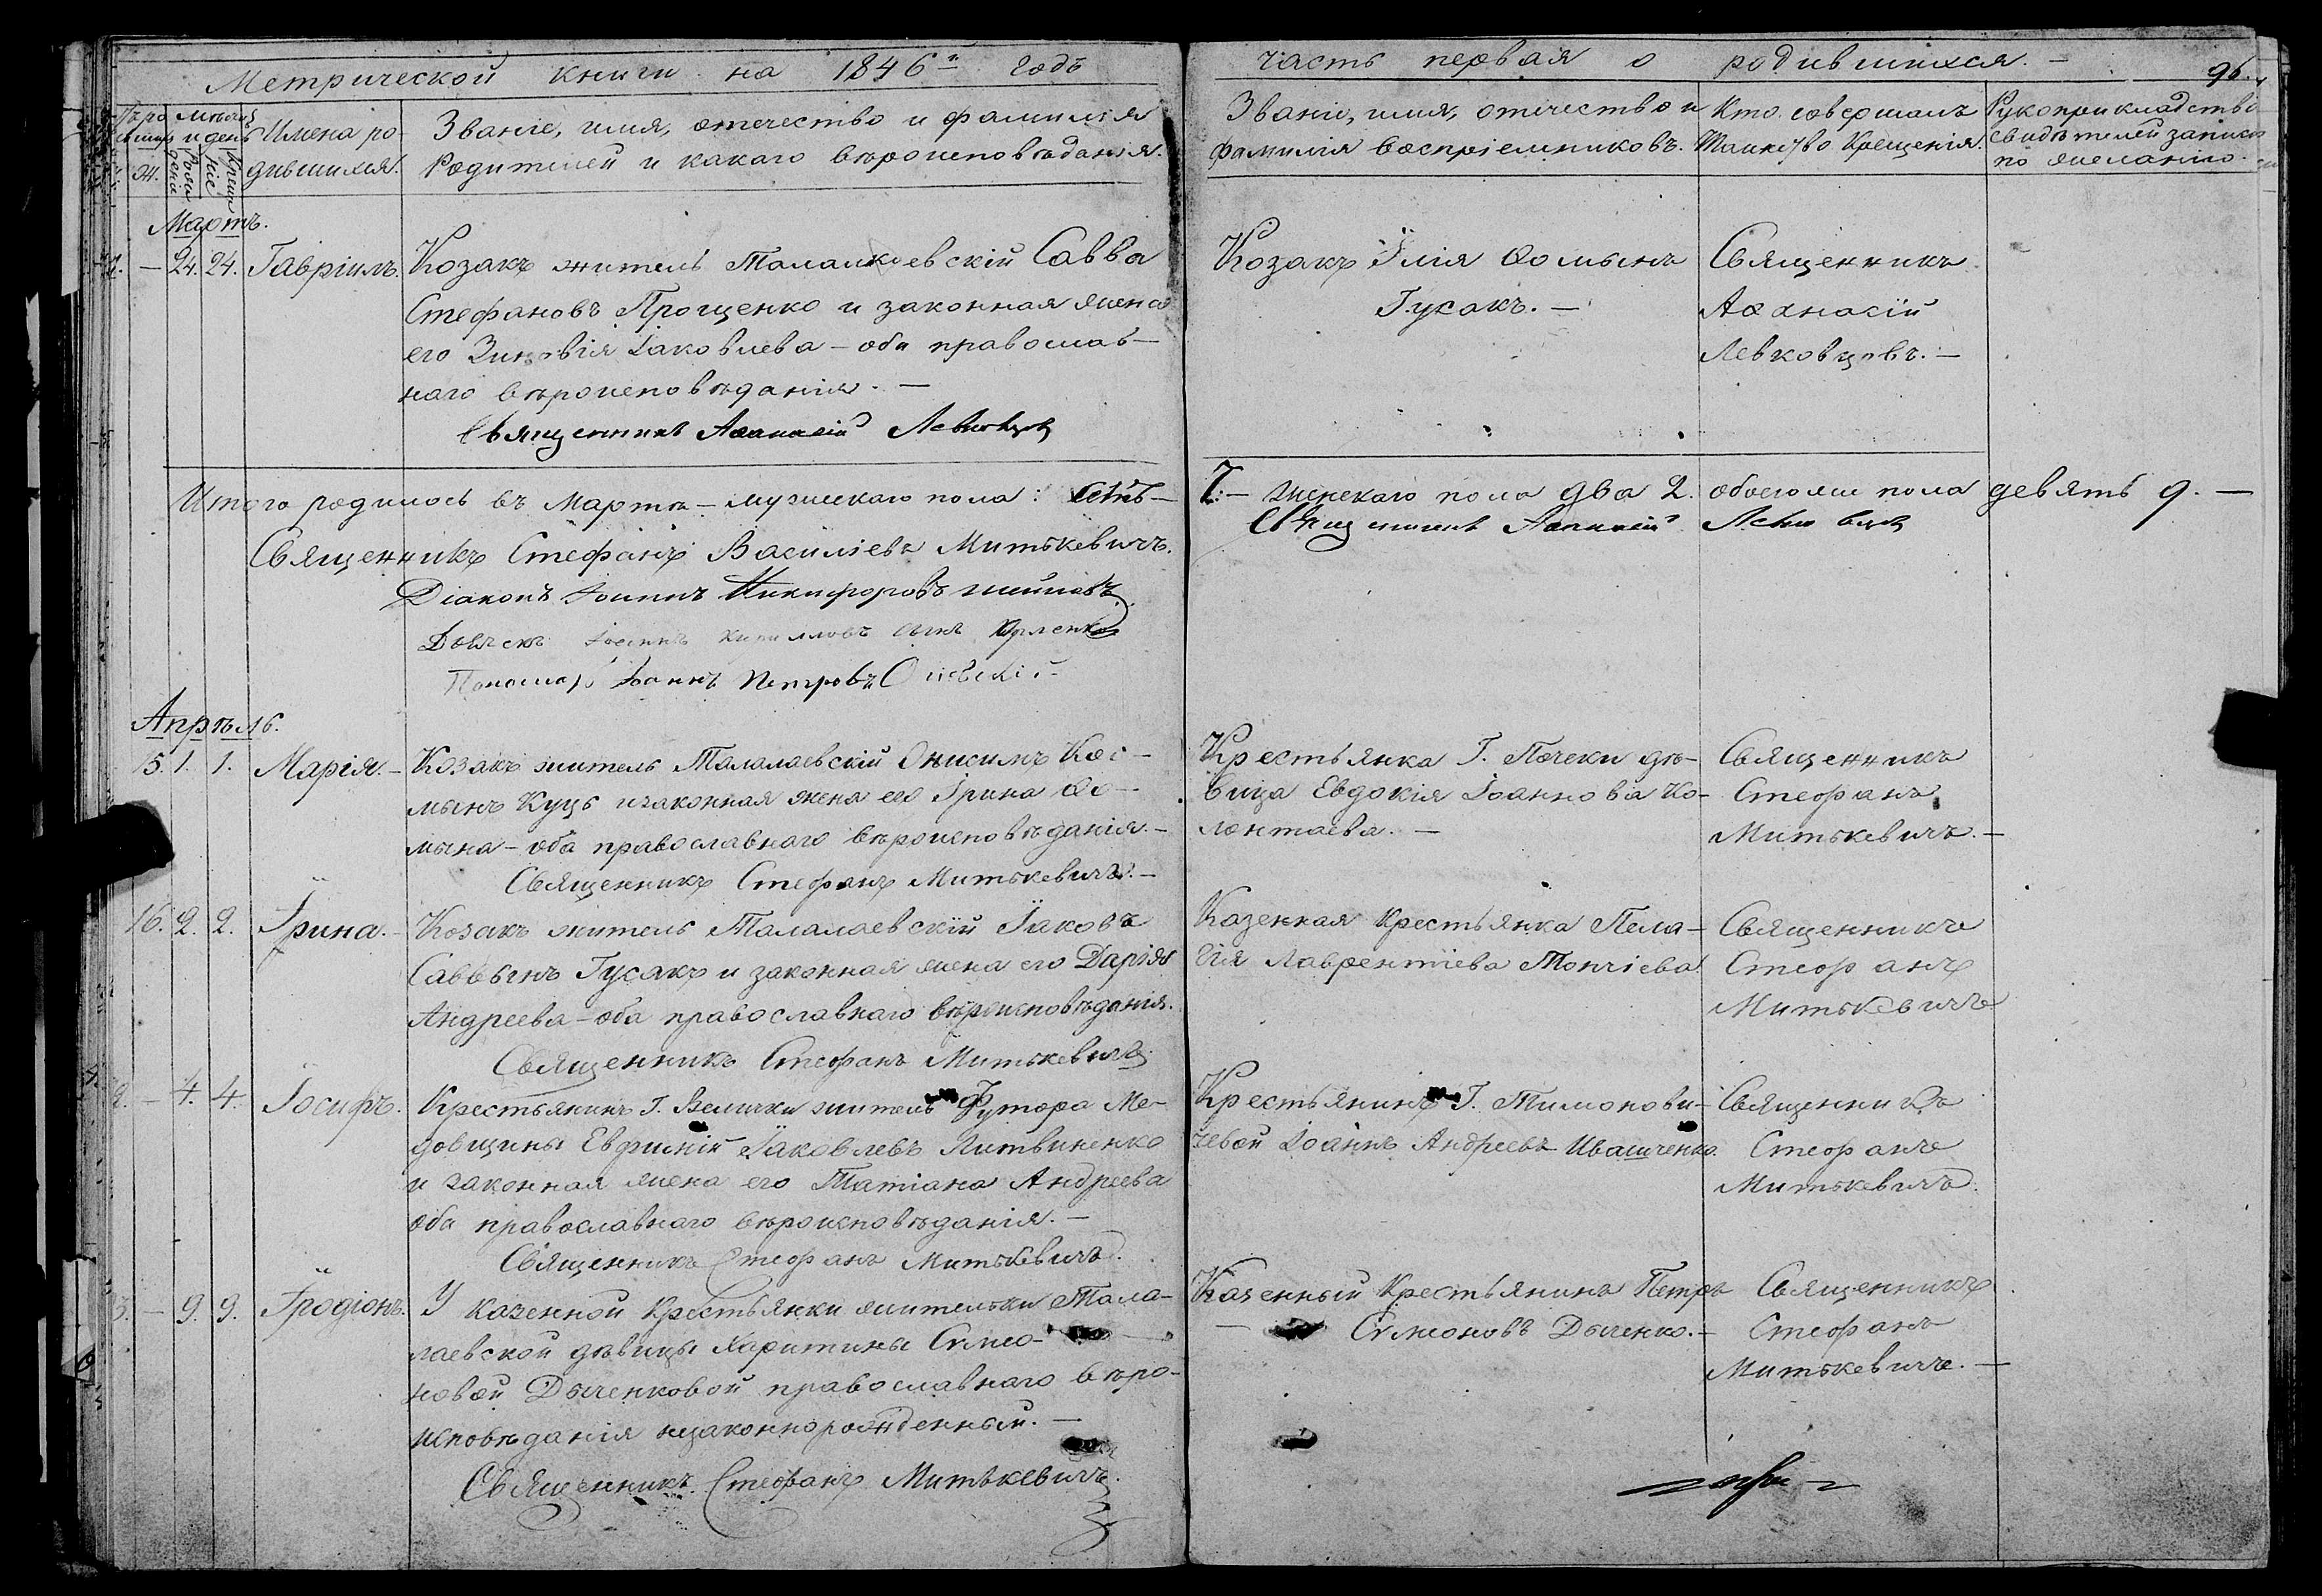 Метрической книги на 1846й годъ
часть первая о родившихся.
96.
Имена родившихся.
Званіе, имя, отечество и фамилія
Родителей и какаго вѣроисповѣданія.
Званіе, имя, отечество и
фамилія воспріемниковъ.
Кто совершалъ
Таинство Крещенія.
Рукоприкладство
свидѣтелей записи
по желанію.
Мартъ.
— 24. 24. Гавріилъ.
Козакъ житель Талалаевскій Савва
Стефановъ Прощенко и законная жена
его Зиновія Іаковлева — оба православ-
наго вѣроисповѣданія. —
Священникъ Аѳанасій Левковцовъ
Козакъ Илія Ѳоминъ
Гусакъ. —
Священникъ
Аѳанасій
Левковцовъ. —
Итого родилось въ Мартѣ — мужескаго пола: семь —
7. — женскаго пола два 2. обоего же пола девять 9. —
Священникъ Аѳанасій Левковцовъ
Священникъ Стефанъ Василіевъ Митькевичъ.
Діаконъ Іоаннъ Никифоровъ
Дьячекъ Іоаннъ Кирилловъ сынъ
Пономарь Іоаннъ Петровъ
Апрѣль.
15. 1. 1. Марія. —
Козакъ житель Талалаевскій Онисимъ Кос-
мынъ Куцъ и законная жена его Ірина Ѳо-
мина — оба православнаго вѣроисповѣданія. —
Священникъ Стефанъ Митькевичъ. —
Крестьянка Г. Почеки дѣ-
вица Евдокія Іоаннова Ко-
лонтаева. —
Священникъ
Стефанъ
Митькевичъ. —
16. 2. 2. Ірина. —
Козакъ житель Талалаевскій Іаковъ
Саввынъ Гусакъ и законная жена его Дарія
Андреева — оба православнаго вѣроисповѣданія.
Священникъ Стефанъ Митькевичъ
Казенная Крестьянка Пела-
гія Лаврентіева Топчіева.
Священникъ
Стефанъ
Митькевичъ
— 4. 4. Іосифъ.
Крестьянинъ Г. Велички житель Футора Ме-
довщины Евфимій Іаковлевъ Литвиненко
и законная жена его Татіана Андреева
оба православнаго вѣроисповѣданія. —
Священникъ Стефанъ Митькевичъ.
Крестьянинъ Г. Тимонови-
чевой Іоаннъ Андреевъ Иващенко.
Священникъ
Стефанъ
Митькевичъ.
— 9. 9. Іродіонъ.
У казенной Крестьянки жительки Тала-
лаевской дѣвицы Харитины Симео-
новой Дьяченковой православнаго вѣро-
исповѣданія незаконнорожденный. —
Священникъ Стефанъ Митькевичъ.
Казенный Крестьянинъ Петръ
Симеоновъ Дьяченко. —
Священникъ
Стефанъ
Митькевичъ. —